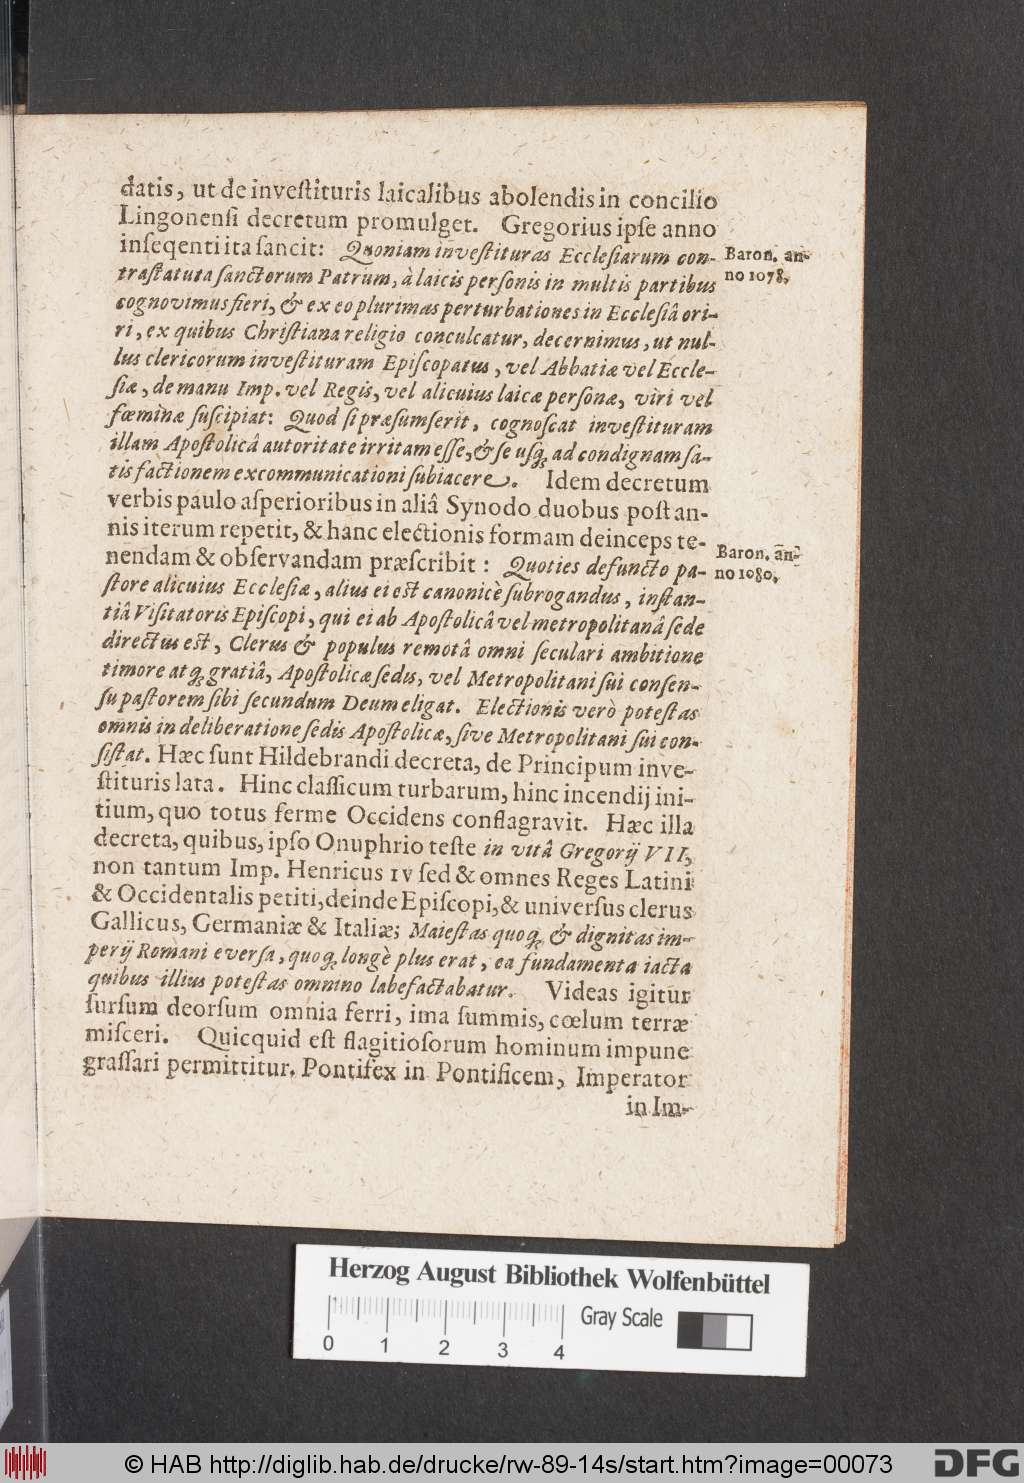 datis, ut de inveſtituris laicalibus abolendis in concilio
Lingonenſi decretum promulget. Gregorius ipſe anno
inſeqenti ita ſancit: Quoniam inveſtituras Eccleſiarum con-
tra ſtatuta ſanctorum Patrum, à laicis perſonis in multis partibus
Baron. an-
no 1078.
cognovimus fieri, & ex eo plurimas perturbationes in Eccleſiâ ori-
ri, ex quibus Chriſtiana religio conculcatur, decernimus, ut nul-
lus clericorum inveſtituram Epiſcopatus, vel Abbatiæ vel Eccle-
ſiæ, de manu Imp. vel Regis, vel alicuius laicæ perſonæ, viri vel
fœminæ ſuſcipiat: Quod ſi præſumſerit, cognoſcat inveſtituram
illam Apoſtolicâ autoritate irritam eſſe, & ſe uſq; ad condignam ſa-
tisfactionem excommunicationi ſubiacere. Idem decretum
verbis paulo aſperioribus in aliâ Synodo duobus poſt an-
nis iterum repetit, & hanc electionis formam deinceps te-
nendam & obſervandam præſcribit: Quoties defuncto pa-
Baron. an̄-
no 1080.
ſtore alicuius Eccleſiæ, alius ei eſt canonicè ſubrogandus, inſtan-
tiâ Viſitatoris Epiſcopi, qui ei ab Apoſtolicâ vel metropolitanâ ſede
directus eſt, Clerus & populus remotâ omni ſeculari ambitione
timore atq; gratiâ, Apoſtolicæ ſedis, vel Metropolitani ſui conſen-
ſu paſtorem ſibi ſecundum Deum eligat. Electionis verò poteſtas
omnis in deliberatione ſedis Apoſtolicæ, ſive Metropolitani ſui con-
ſiſtat. Hæc ſunt Hildebrandi decreta, de Principum inve-
ſtituris lata. Hinc claſſicum turbarum, hinc incendij ini-
tium, quo totus ferme Occidens conflagravit. Hæc illa
decreta, quibus, ipſo Onuphrio teſte in vitâ Gregorij VII,
non tantum Imp. Henricus IV ſed & omnes Reges Latini
& Occidentalis petiti, deinde Epiſcopi, & univerſus clerus
Gallicus, Germaniæ & Italiæ; Maieſtas quoq; & dignitas im-
perij Romani everſa, quoq; longè plus erat, ea fundamenta iacta
quibus illius poteſtas omnino labefactabatur. Videas igitur
ſurſum deorſum omnia ferri, ima ſummis, cœlum terræ
miſceri. Quicquid eſt flagitioſorum hominum impune
graſſari permittitur. Pontifex in Pontificem, Imperator
in Im-
Herzog August Bibliothek Wolfenbüttel
Gray Scale
0 1 2 3 4
© HAB http://diglib.hab.de/drucke/rw-89-14s/start.htm?image=00073
DFG